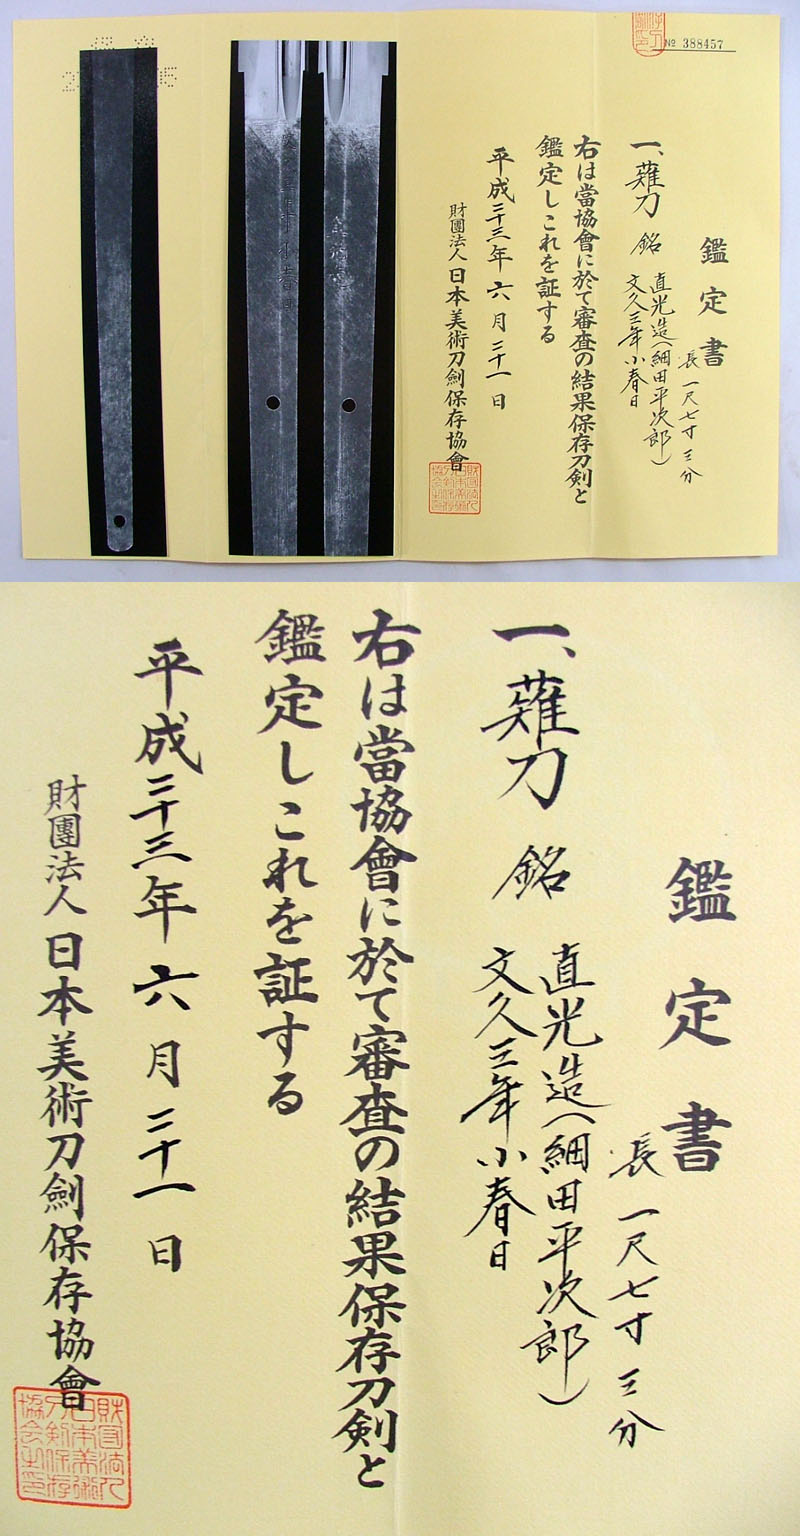 № 388457
鑑定書
長 一尺七寸三分
一、薙刀 銘 直光造(細田平次郎)
文久三年小春日
右は當協會に於て審査の結果保存刀剣と
鑑定しこれを証する
平成二十三年六月二十一日
財團法人日本美術刀劍保存協會
鑑定書
長 一尺七寸三分
一、薙刀 銘 直光造(細田平次郎)
文久三年小春日
右は當協會に於て審査の結果保存刀剣と
鑑定しこれを証する
平成二十三年六月二十一日
財團法人日本美術刀劍保存協會